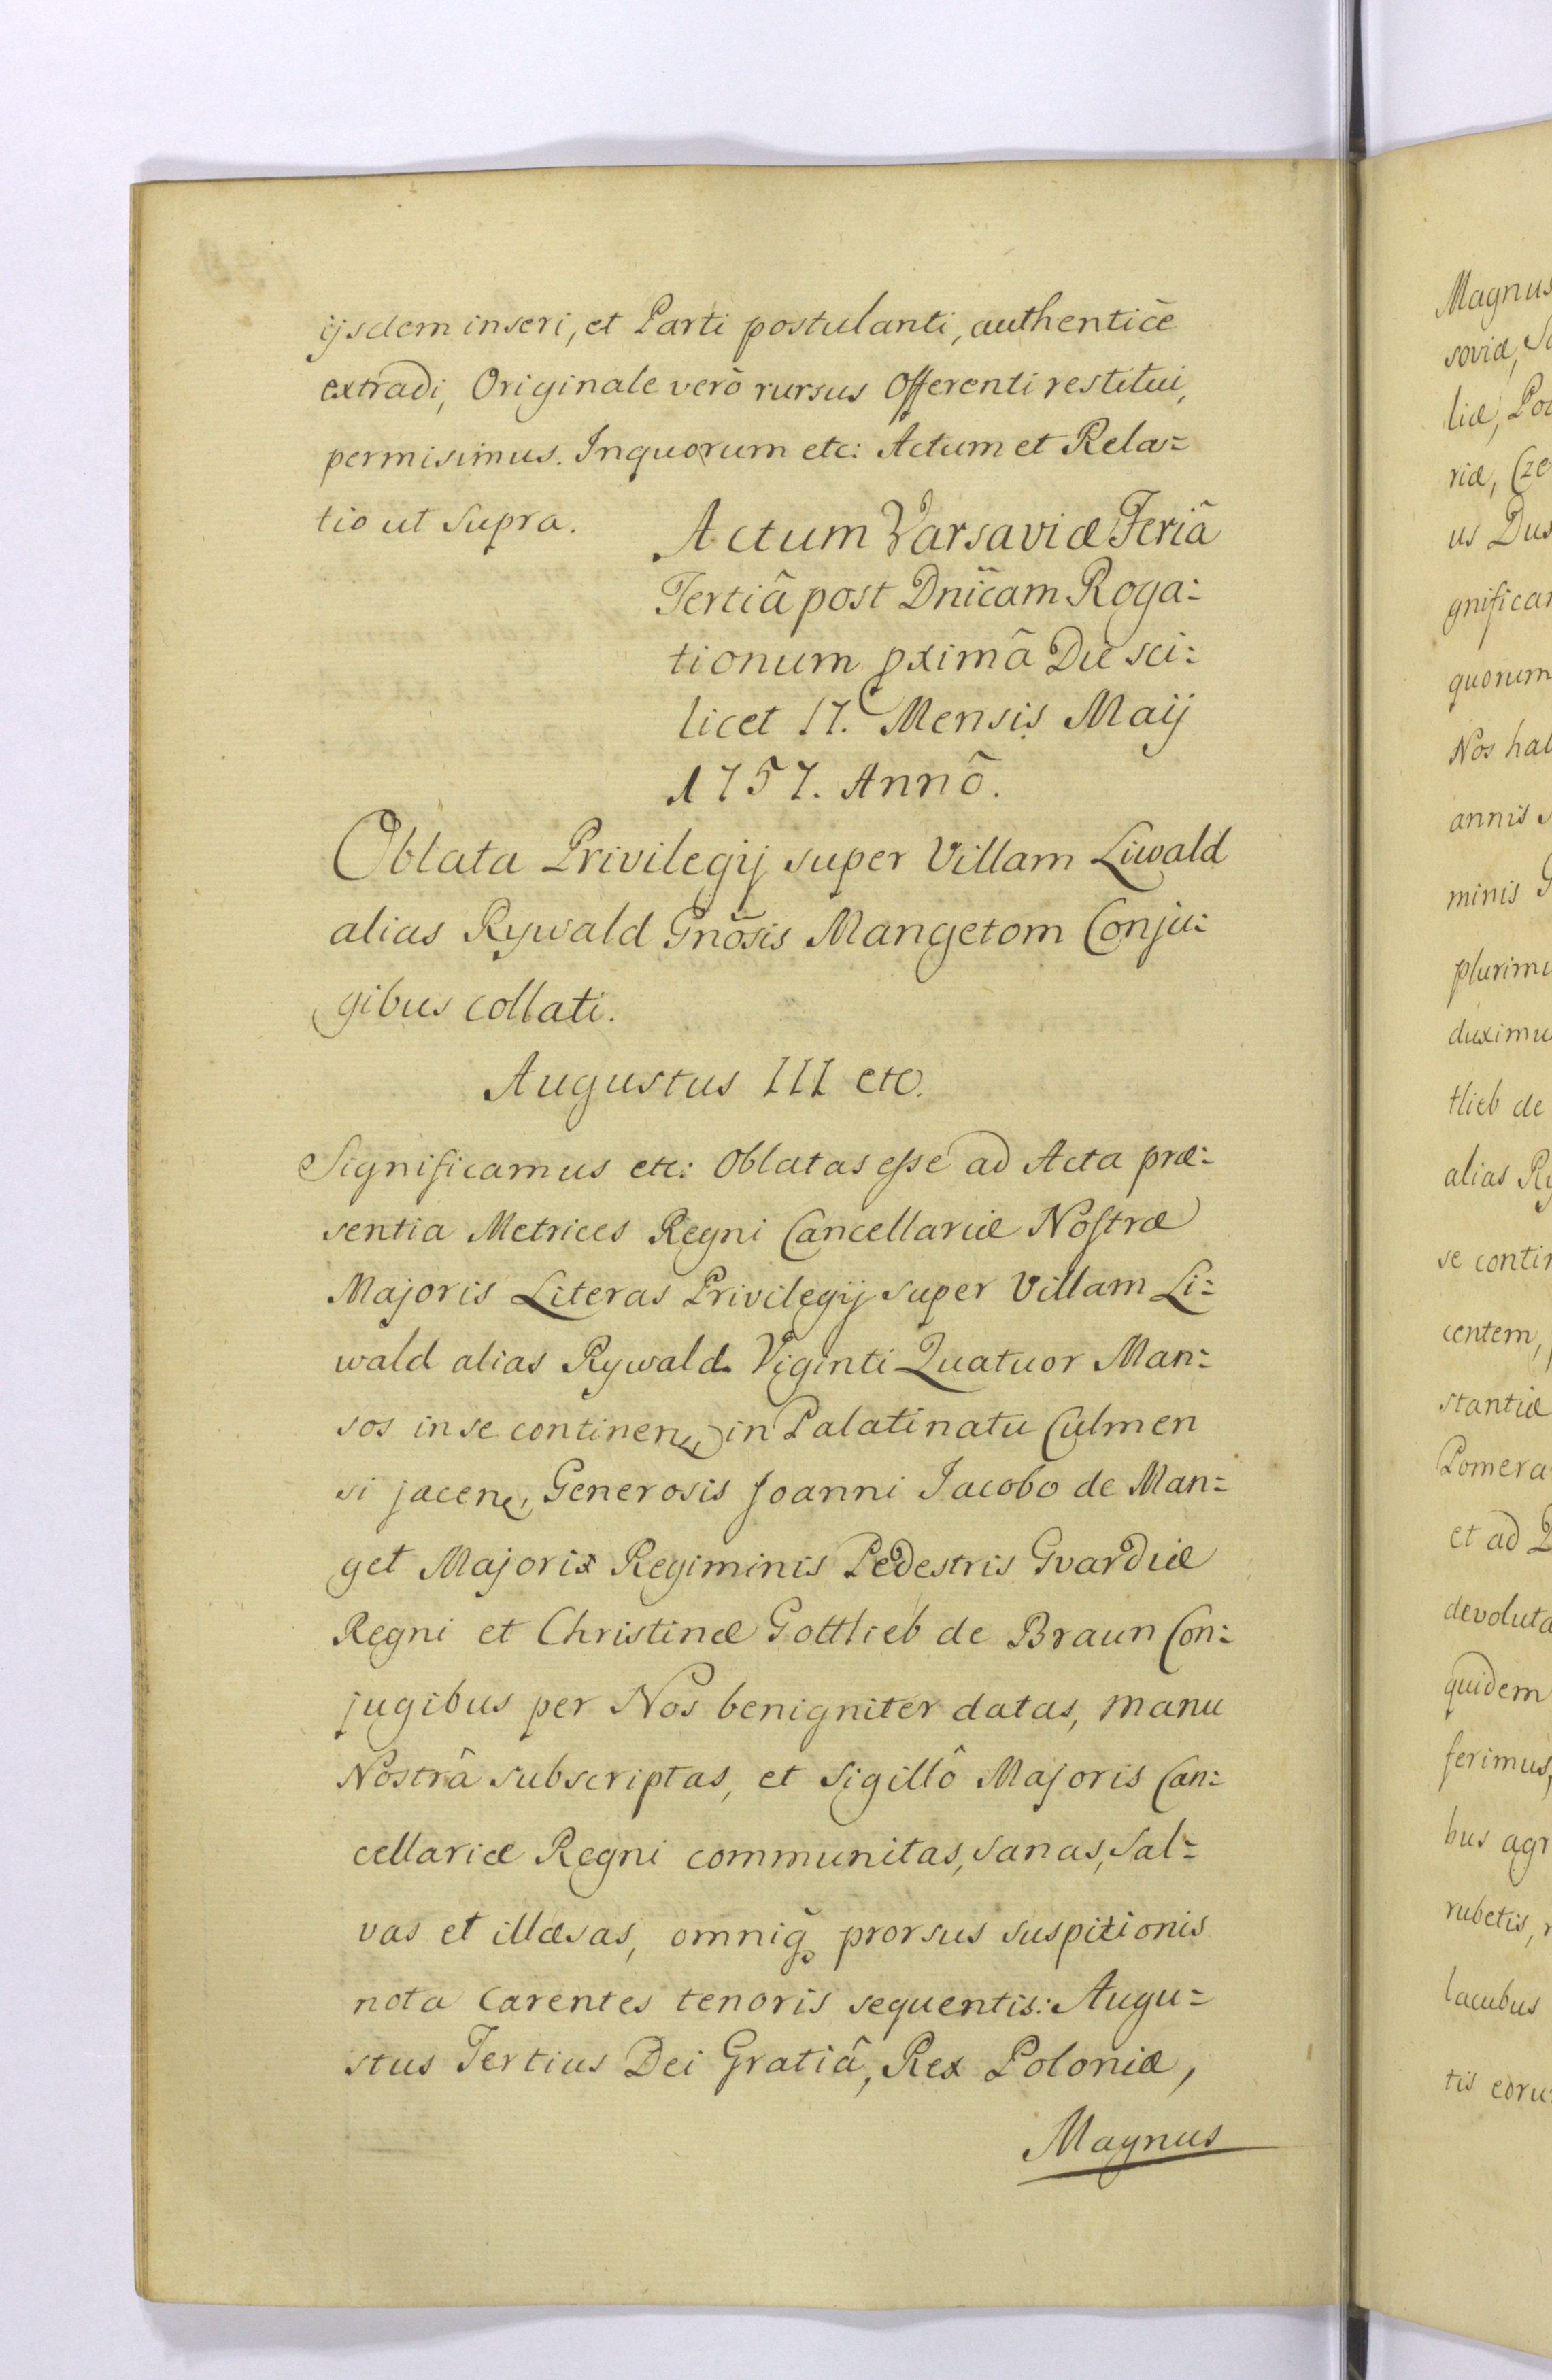 ijsdem inseri, et Parti postulanti, authenticè
extradi, Originale verò rursus Offerenti restitui,
permisimus. Inquorum etc: Actum et Rela=
tio ut supra.
Actum Varsaviæ Feriâ
Tertiâ post Dnīcam Roga=
tionum pximâ Die sci=
licet 17. Mensis Maij
1757. Annô.
Oblata Privilegij super Villam Liwald
alias Rywald Gnõsis Mangetom Conju=
gibus collati.
Augustus III etc.
Significamus etc: Oblatas esse ad Acta præ=
sentia Metrices Regni Cancellariæ Nostræ
Majoris Literas Privilegij super Villam Li=
wald alias Rywald Viginti Quatuor Man=
sos in se continen, in Palatinatu Culmen
si jacen, Generosis Joanni Jacobo de Man=
get Majoris Regiminis Pedestris Gvardiæ
Regni et Christinæ Gottlieb de Braun Con=
jugibus per Nos benigniter datas, manu
Nostrâ subscriptas, et Sigillô Majoris Can=
cellariæ Regni communitas, sanas, sal=
vas et illæsas, omniq̃ prorsus suspitionis
nota carentes tenoris sequentis: Augu=
stus Tertius Dei Gratiâ, Rex Poloniæ,
Magnus
Magnus
soviæ,
liæ,
riæ, Cze
us
gnificam
quorum
Nos hab
annis
minis
plurimu
duximu
tlieb de
alias Ry
se contin
centem,
stantiæ
Pomera
et ad
devoluta
quidem
ferimus,
bus agr
rubetis,
lacubus
tis eoru